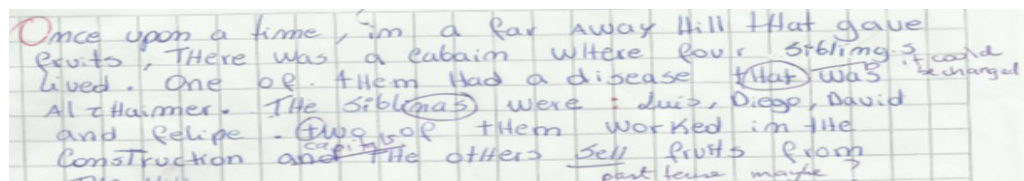 Once upon a time, in a far away Hill that gave
fruits, THere was a cabaim where four siblings
lived. One of them Had a disease that was it could be changed
AlzHaimer. THe siblings were: Luis, Diego, David
and felipe. two of them worked in the
capitals
Construction and THe others sell fruits from
past tense maybe?